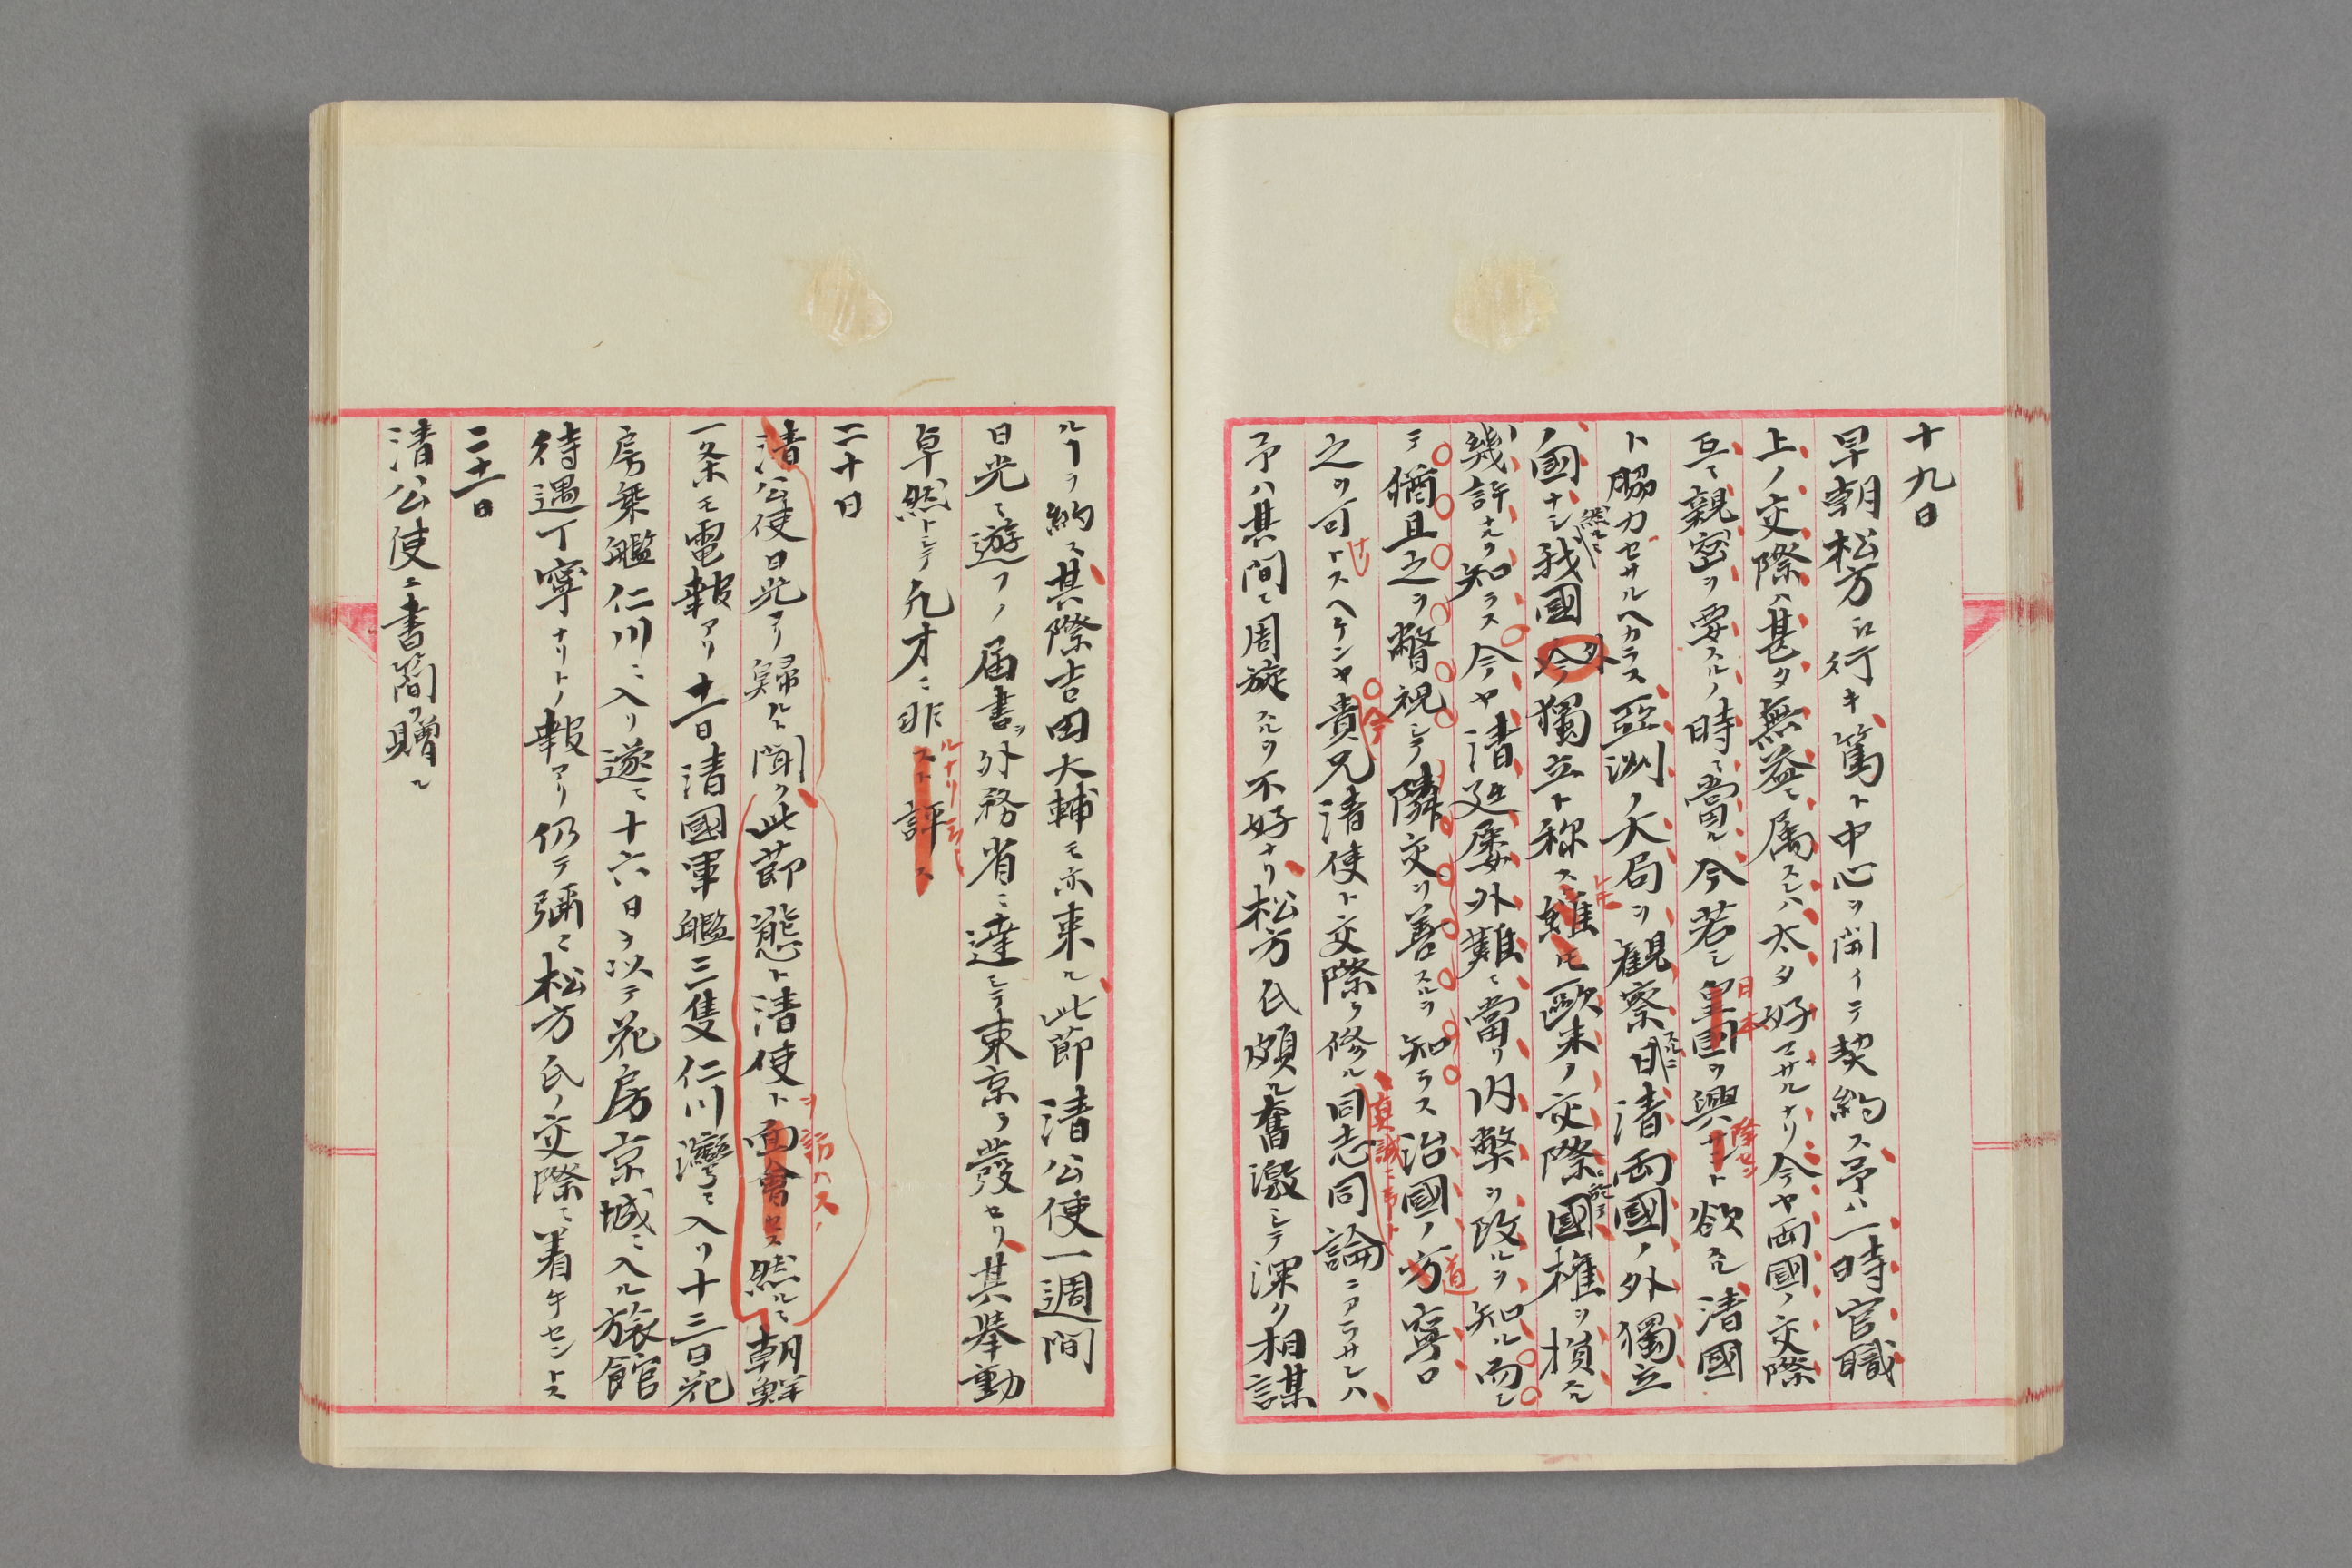 十九日
早朝松方ニ行キ篤ト中心ヲ開イテ契約ス予ハ一時官職
上ノ交際ハ甚タ無益ニ属スレハ太タ好マサルナリ今ヤ両國ノ交際
互ニ親密ヲ要スルノ時ニ當ル今若シ皇国ヲ興サント欲スル清國
日本
隆セン
ト脇力セサルヘカラス亞洲ノ大局ヲ観察スルニ日清両國ノ外獨立
ノ國ナシ然ルニ我國今獨立ト称スト雖モ歐米ノ交際ニ於テ國権ヲ損スル
外
幾許ナルヲ知ラス今ヤ清廷屡外難ニ當リ内弊ヲ改ルヲ知ル而シ
テ猶且之ヲ瞥視シテ隣交ヲ善スルヲ知ラス治國ノ方寧ロ
道
之ヲ可トスヘケンヤ貴兄清使ト交際ヲ修ル同志同論ニアラサレハ
今
真誠ニ
予ハ其間ニ周旋スルヲ不好ナリ松方氏頗ル奮激シテ深ク相謀
ルヿヲ約ス其際吉田大輔モ亦来ル此節清公使一週間
日光ニ遊フノ届書ヲ外務省ニ達シテ東京ヲ發セリ其挙動
卓然トシテ凡才ニ非スト評ス
ルナリ
二十日
清公使日光ヨリ歸ルト聞ク此節態ト清使ト面會セス然ルニ朝鮮
ヲ訪ハス
一条モ電報アリ十一日清國軍艦三隻仁川灣ニ入リ十三日花
房乗艦仁川ニ入リ遂ニ十六日ヲ以テ花房京城ニ入ル旅館
待遇丁寧ナリトノ報アリ仍テ彌ニ松方氏ノ交際ニ着手セントス
二十一日
清公使ニ書簡ヲ贈ル